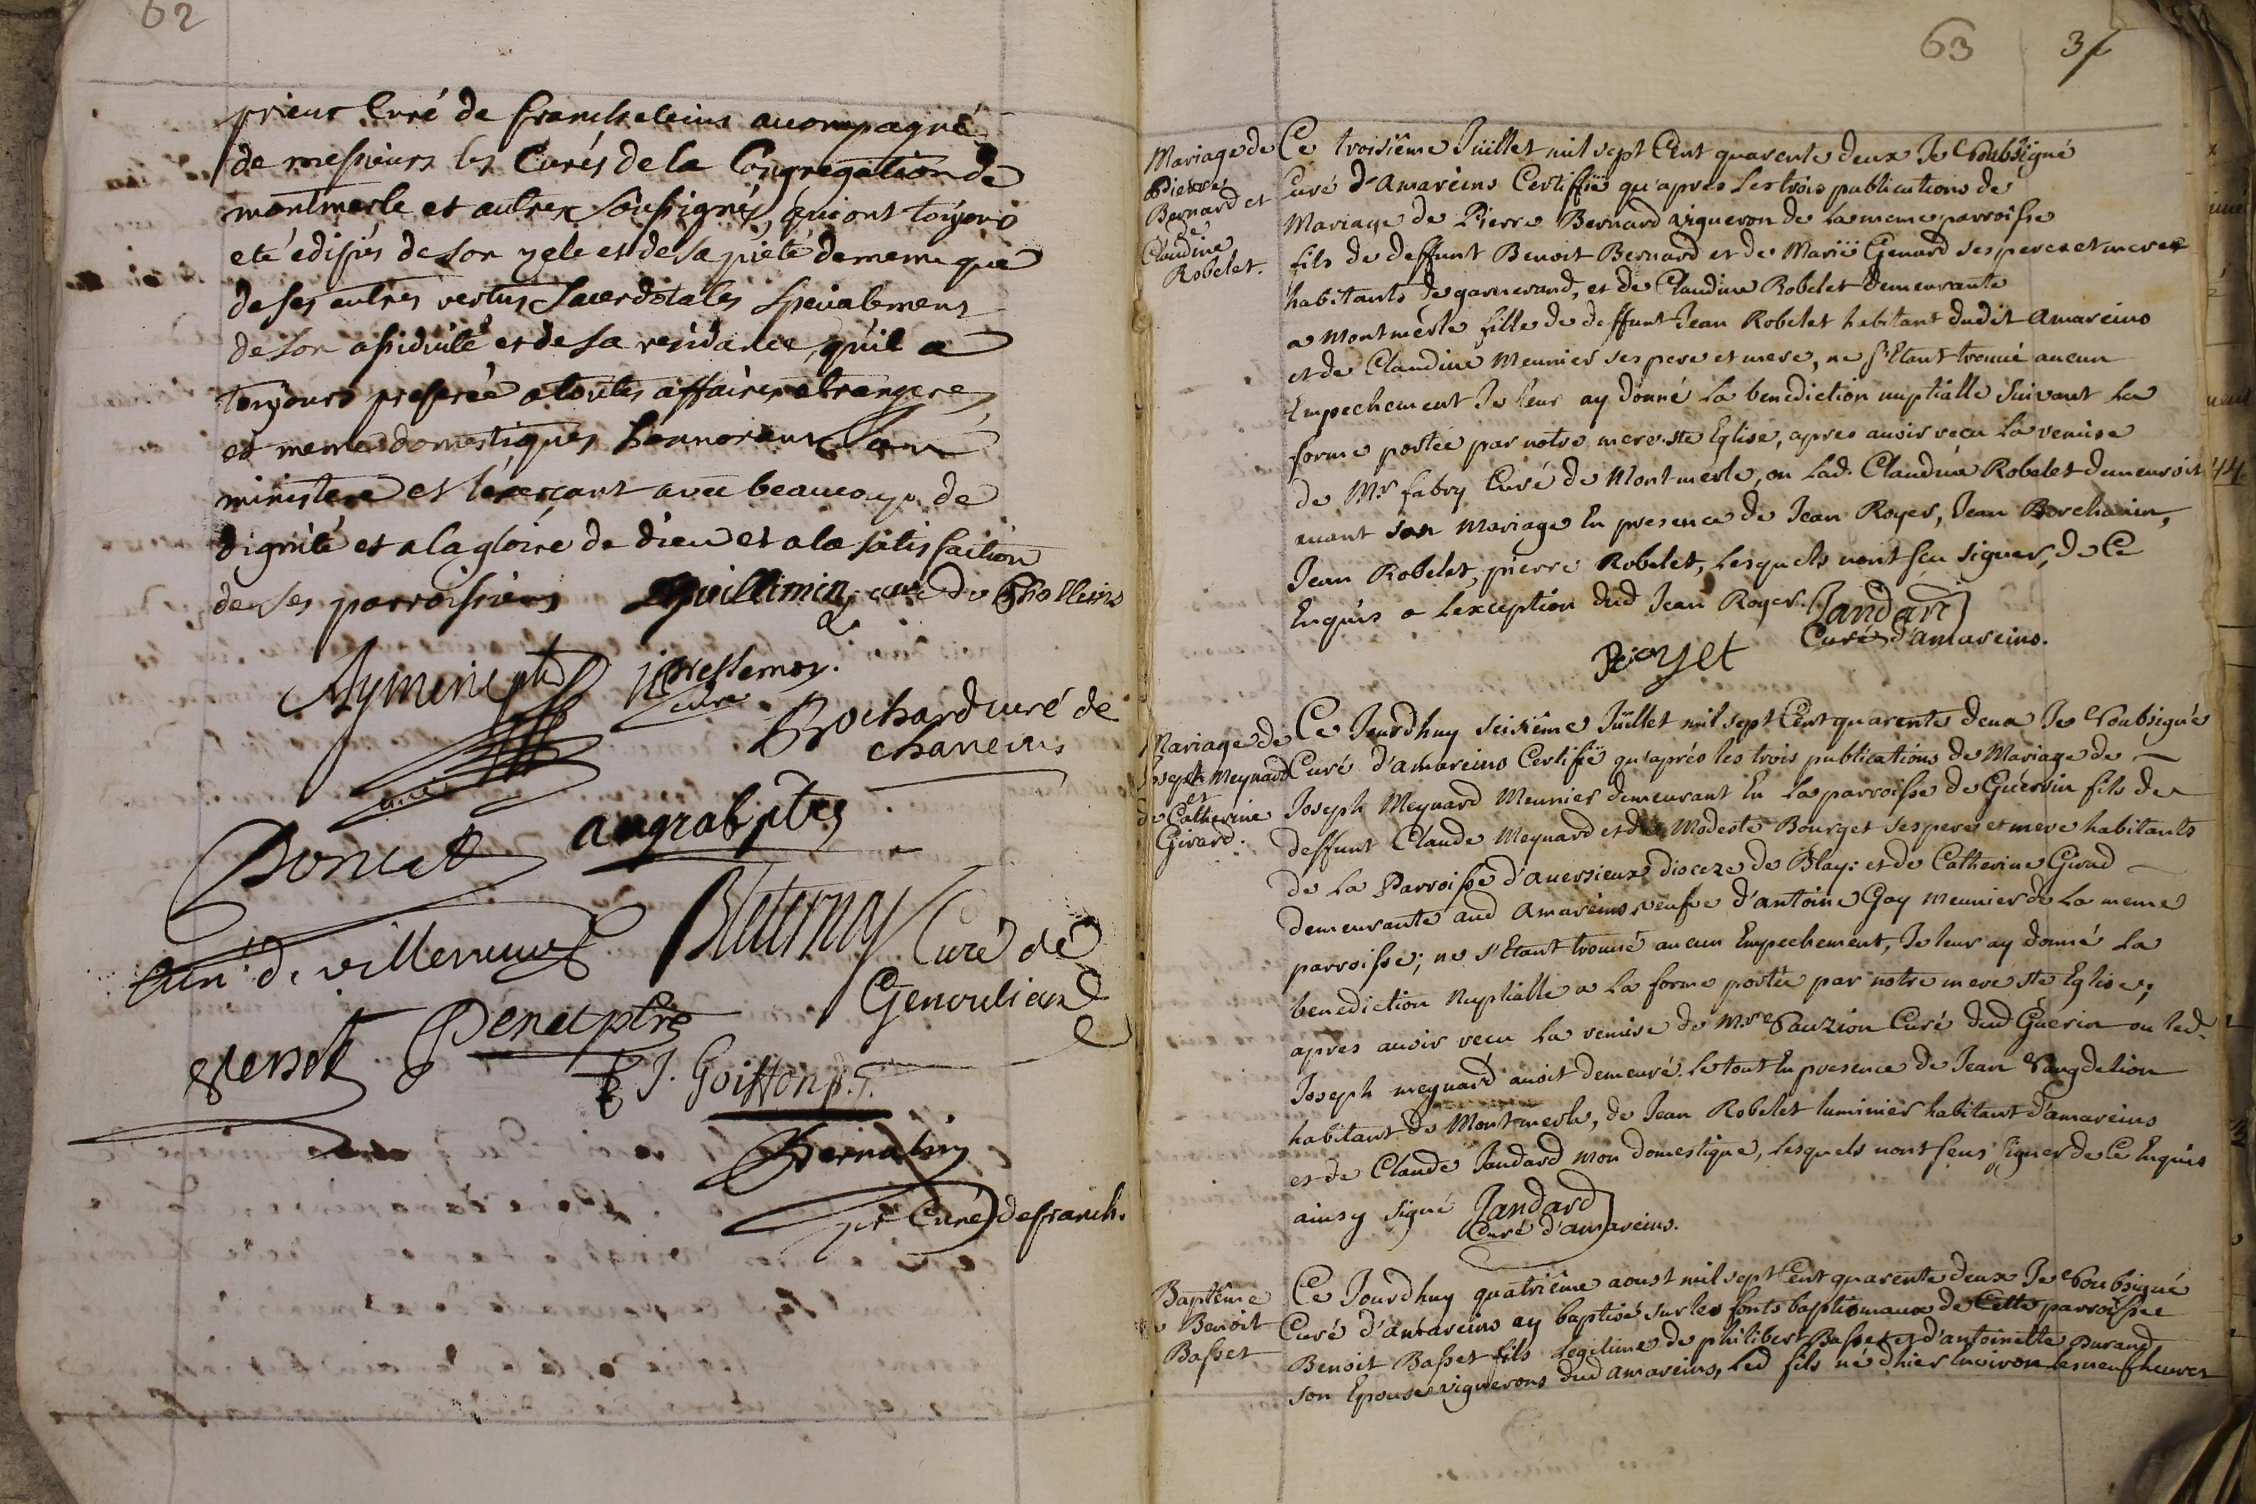 62
prieur Curé de francheleins accompagné
de messieurs les Curés de la Congregation de
montmerle et autres soussignés, qui ont toujours
eté édifiés de son zele et de sa pieté de meme que
de ses autres vertus sacerdotales specialement
de son assiduité et de sa residance, qu'il a
toujours preferée a toutes affaires etrangeres
et meme domestiques, honnorant son
ministere et l'exerçant avec beaucoup de
dignité et a la gloire de dieu et a la satisfaction
de ses parroissiens Guillimin curé de Cholleins
Aymin ptre
curé
Bochard curé de
chaneins
Doncet augrab ptre
curé de villeneuve
Curé de
Genoulieux
ptre
J. Goiffon p.
Bernalin
pr Curé de franch.
63 37
Mariage de
Pierre
Bernard et
de
Claudine
Robelet.
Ce troisiême Juillet mil sept Cent quarente deux Je Soubsigné
Curé d'Amareins Certiffie qu'apres les trois publications de
Mariage de Pierre Bernard vigneron de La meme parroisse
fils de deffunt Benoit Bernard et de Marie Genard ses peres et meres
habitants de garnerand, et de Claudine Robelet demeurante
a Montmerle fille de deffunt Jean Robelet habitant dudit Amareins
et de Claudine Meunier ses pere et mere, ne s'Etant trouué aucun
Empechement Je leur ay donné La benediction nuptialle suivant La
forme portée par notre mere ste Eglise, apres auoir recu La remise
de Mr fabry Curé de Montmerle, ou Lad. Claudine Robelet demeuroit
auant son Mariage En presence de Jean Royer, Jean Berchanin,
Jean Robelet, pierre Robelet, Lesquels nont sçu signer, de Ce
Enquis a Lexception dud Jean Royer. Jandard
Curé d'amareins.
Royet
Mariage de
Joseph Meynard
et
de Catherine
Girard.
Ce Jourdhuy seisiême Juillet mil sept Cent quarente deux Je Soubsigné
Curé d'amareins Certifie qu'aprés les trois publications de Mariage de
Joseph Meynard Meunier demeurant En La parroisse de Guérrin fils de
deffunt Claude Meynard et de Modeste Bourget ses pere et mere habitants
de La Parroisse d'auersieux dioceze de Blay: et de Catherine Girad
demeurante aud Amareins veufve d'antoine Gay Meunier de La meme
parroisse; ne s'Etant trouué aucun Empechement, Je leur ay donné La
benediction Nuptialle a La forme portée par notre mere ste Eglise;
apres auoir recu La remise de Mre Sauzion Curé dud Guérin ou led.
Joseph meynard auoit demeuré. Le tout En presence de Jean Sangdelion
habitant de Montmerle, de Jean Robelet luminier habitant d'amareins
et de Claude Jandard mon domestique, Lesquels nont sceus signer de Ce Enquis
ainsy signé Jandard
Curé d'amareins.
Baptême
Benoit
Basset
Ce Jourdhuy quatriême aoust mil sept Cent quarente deux Je Soubsigné
Curé d'amareins ay baptisé sur les fonts baptismaux de Cette parroisse
Benoit Basset fils Legitime de philibert Basset et d'antoinette Durand
son Epouse vignerons dud Amareins, Led fils né d'hier Enuiron les neuf heures